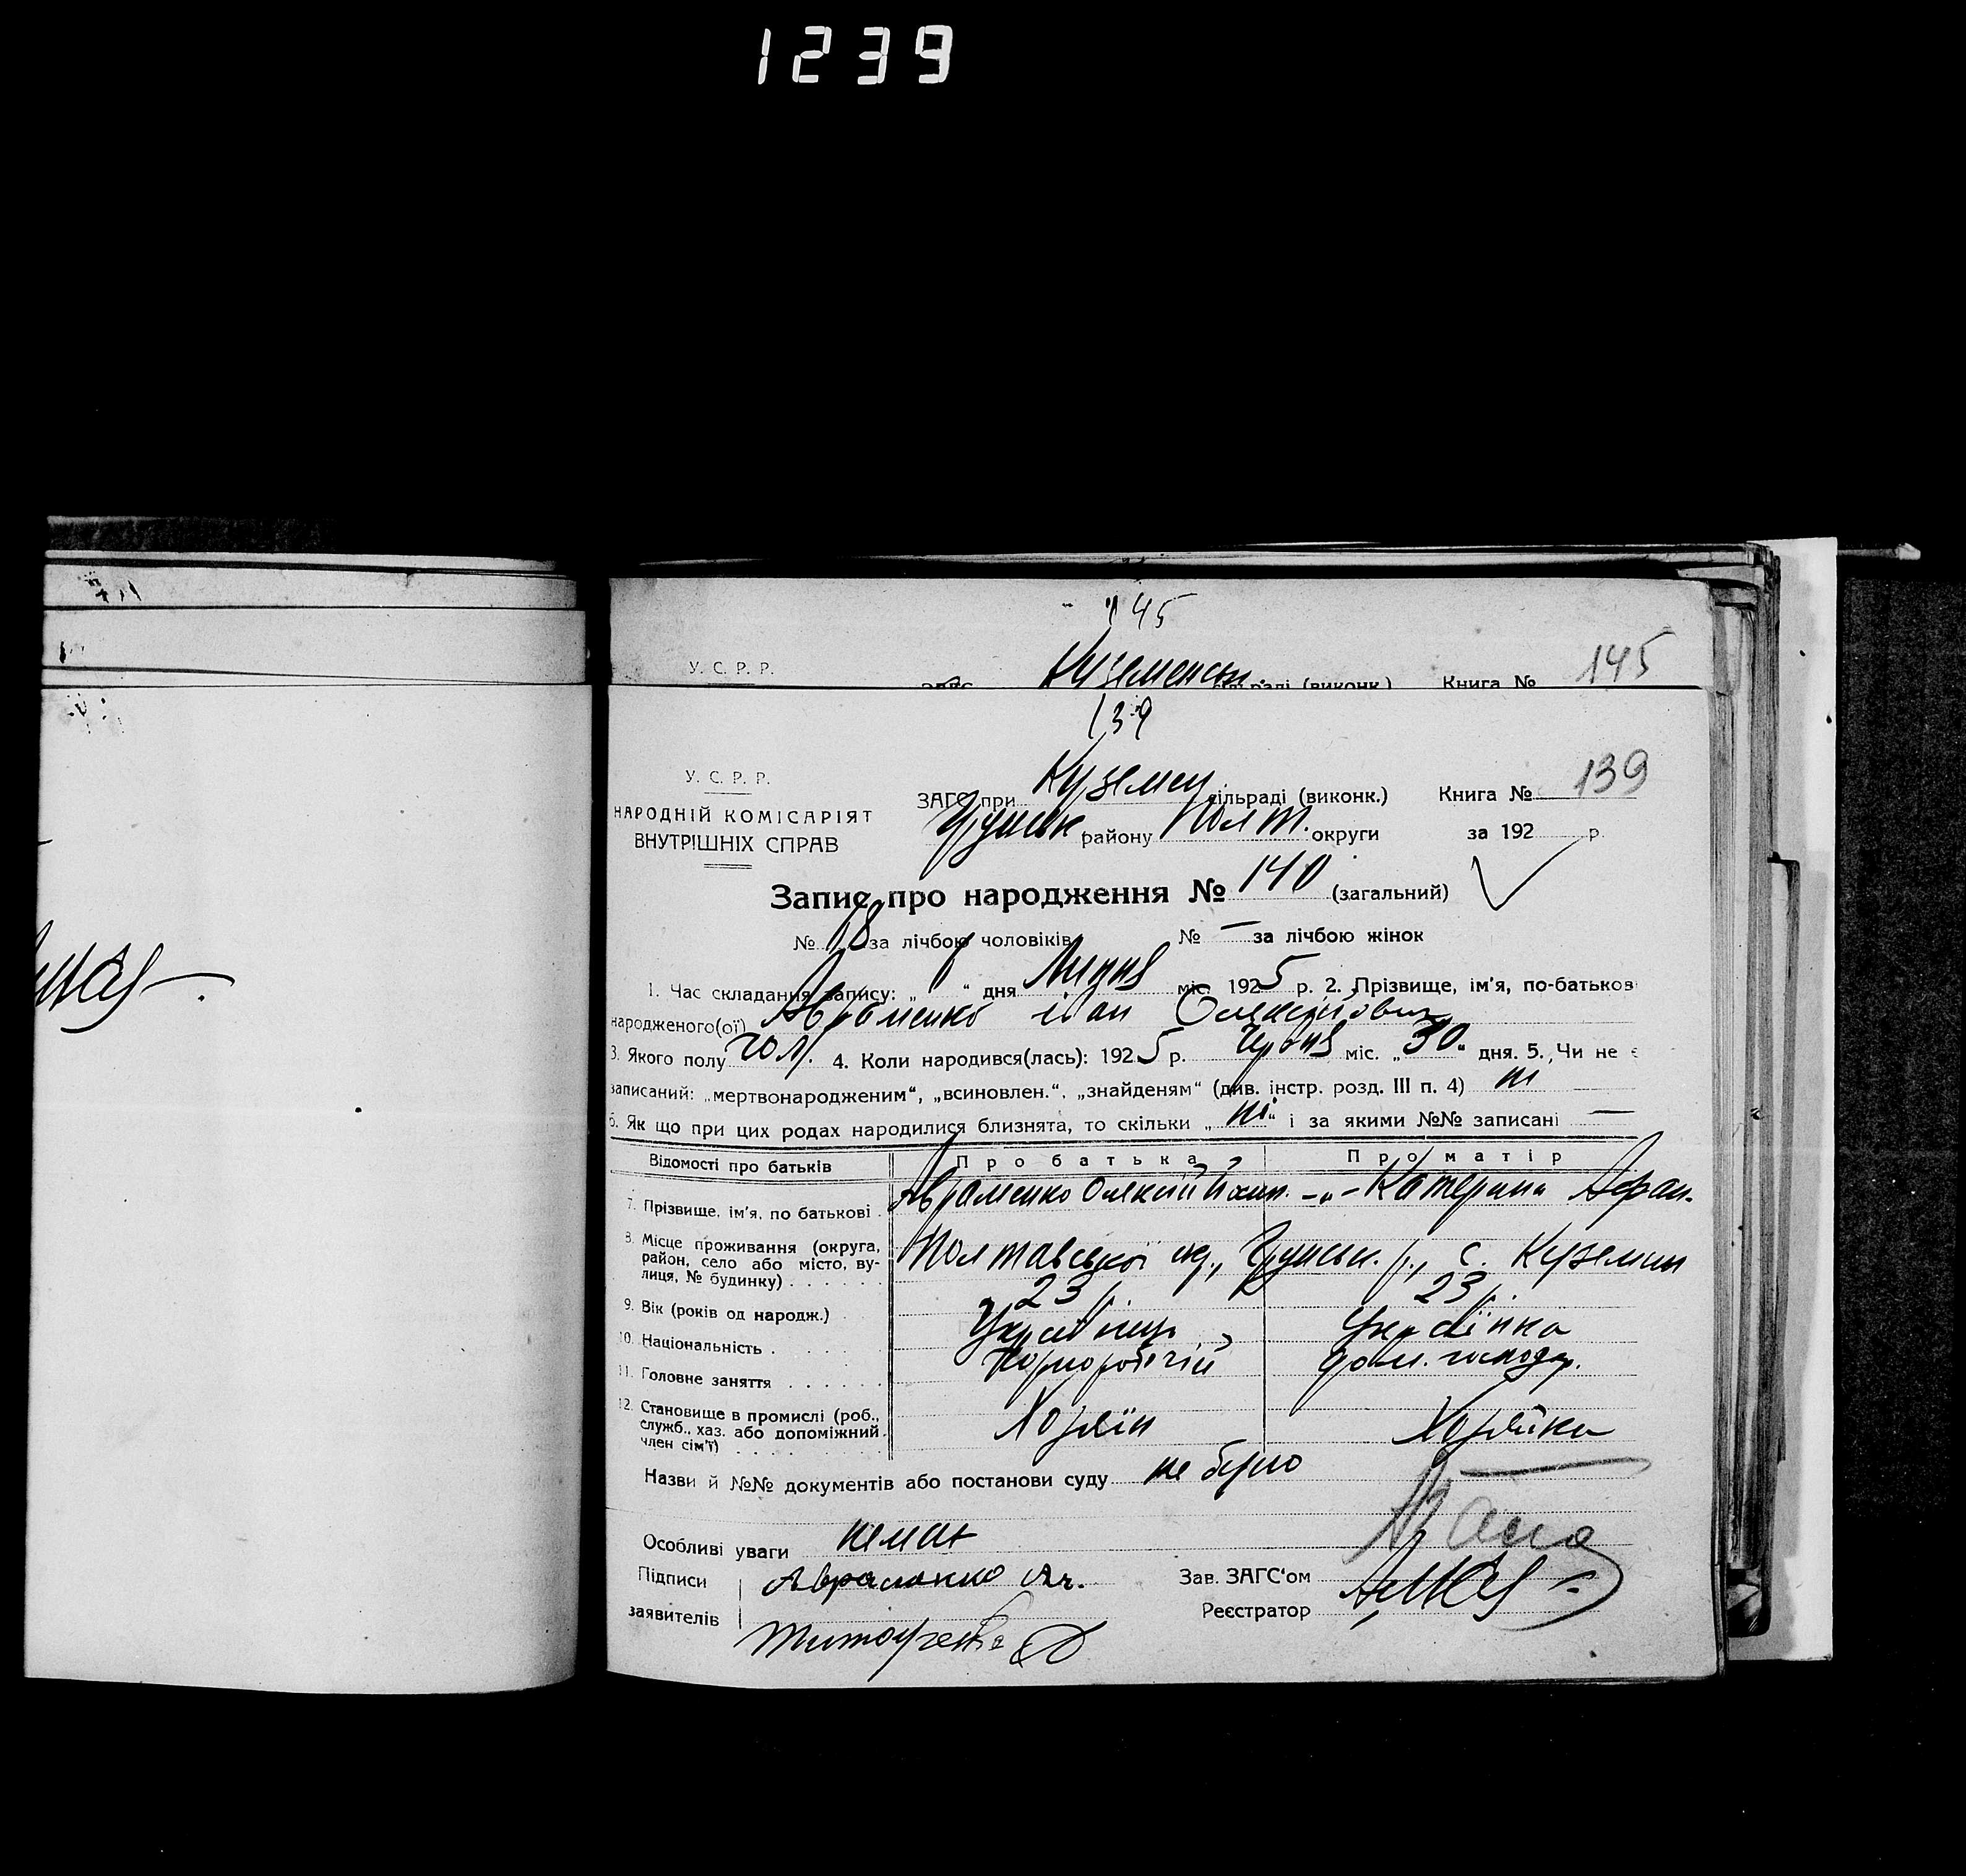 1239
145
У. С. Р. Р.
Куземенськ. сільраді (виконк.) Книга № 145
139
У. С. Р. Р.
НАРОДНІЙ КОМІСАРІЯТ
ВНУТРІШНІХ СПРАВ
ЗАГС при Куземен сільраді (виконк.) Книга № 139
Грунськ району Полт. округи за 192 р.
Запис про народження № 140 (загальний)
№ 78 за лічбою чоловіків № — за лічбою жінок
1. Час складання запису: „ 1 “ дня Липня міс. 1925 р. 2. Прізвище, ім'я, по-батьков
народженого(ої) Авраменко Іван Олексійович
3. Якого полу чол. 4. Коли народився(лась): 1925 р. Червня міс. „30“ дня. 5. Чи не є
записаний: „мертвонародженим“, „всиновлен.“, „знайденям“ (див. інстр. розд. III п. 4) ні
6. Як що при цих родах народилися близнята, то скільки „ні“ і за якими №№ записані —
Відомості про батьків Про батька Про матір
7. Прізвище, ім'я, по батькові Авраменко Олексій -„- Катерина Афан.
8. Місце проживання (округа, район, село або місто, вулиця, № будинку) Полтавської окр., Грунськ. р., с. Куземин
9. Вік (років од народж.) 23 р. 23 р.
10. Національність Українець Українка
11. Головне заняття Чорноробочий дом. господар.
12. Становище в промислі (роб., служб., хаз. або допоміжний член сім'ї) Хозяїн Хозяйка
Назви й №№ документів або постанови суду не було
Особливі уваги немає
Підписи заявителів Авраменко
Зав. ЗАГС'ом
Реєстратор